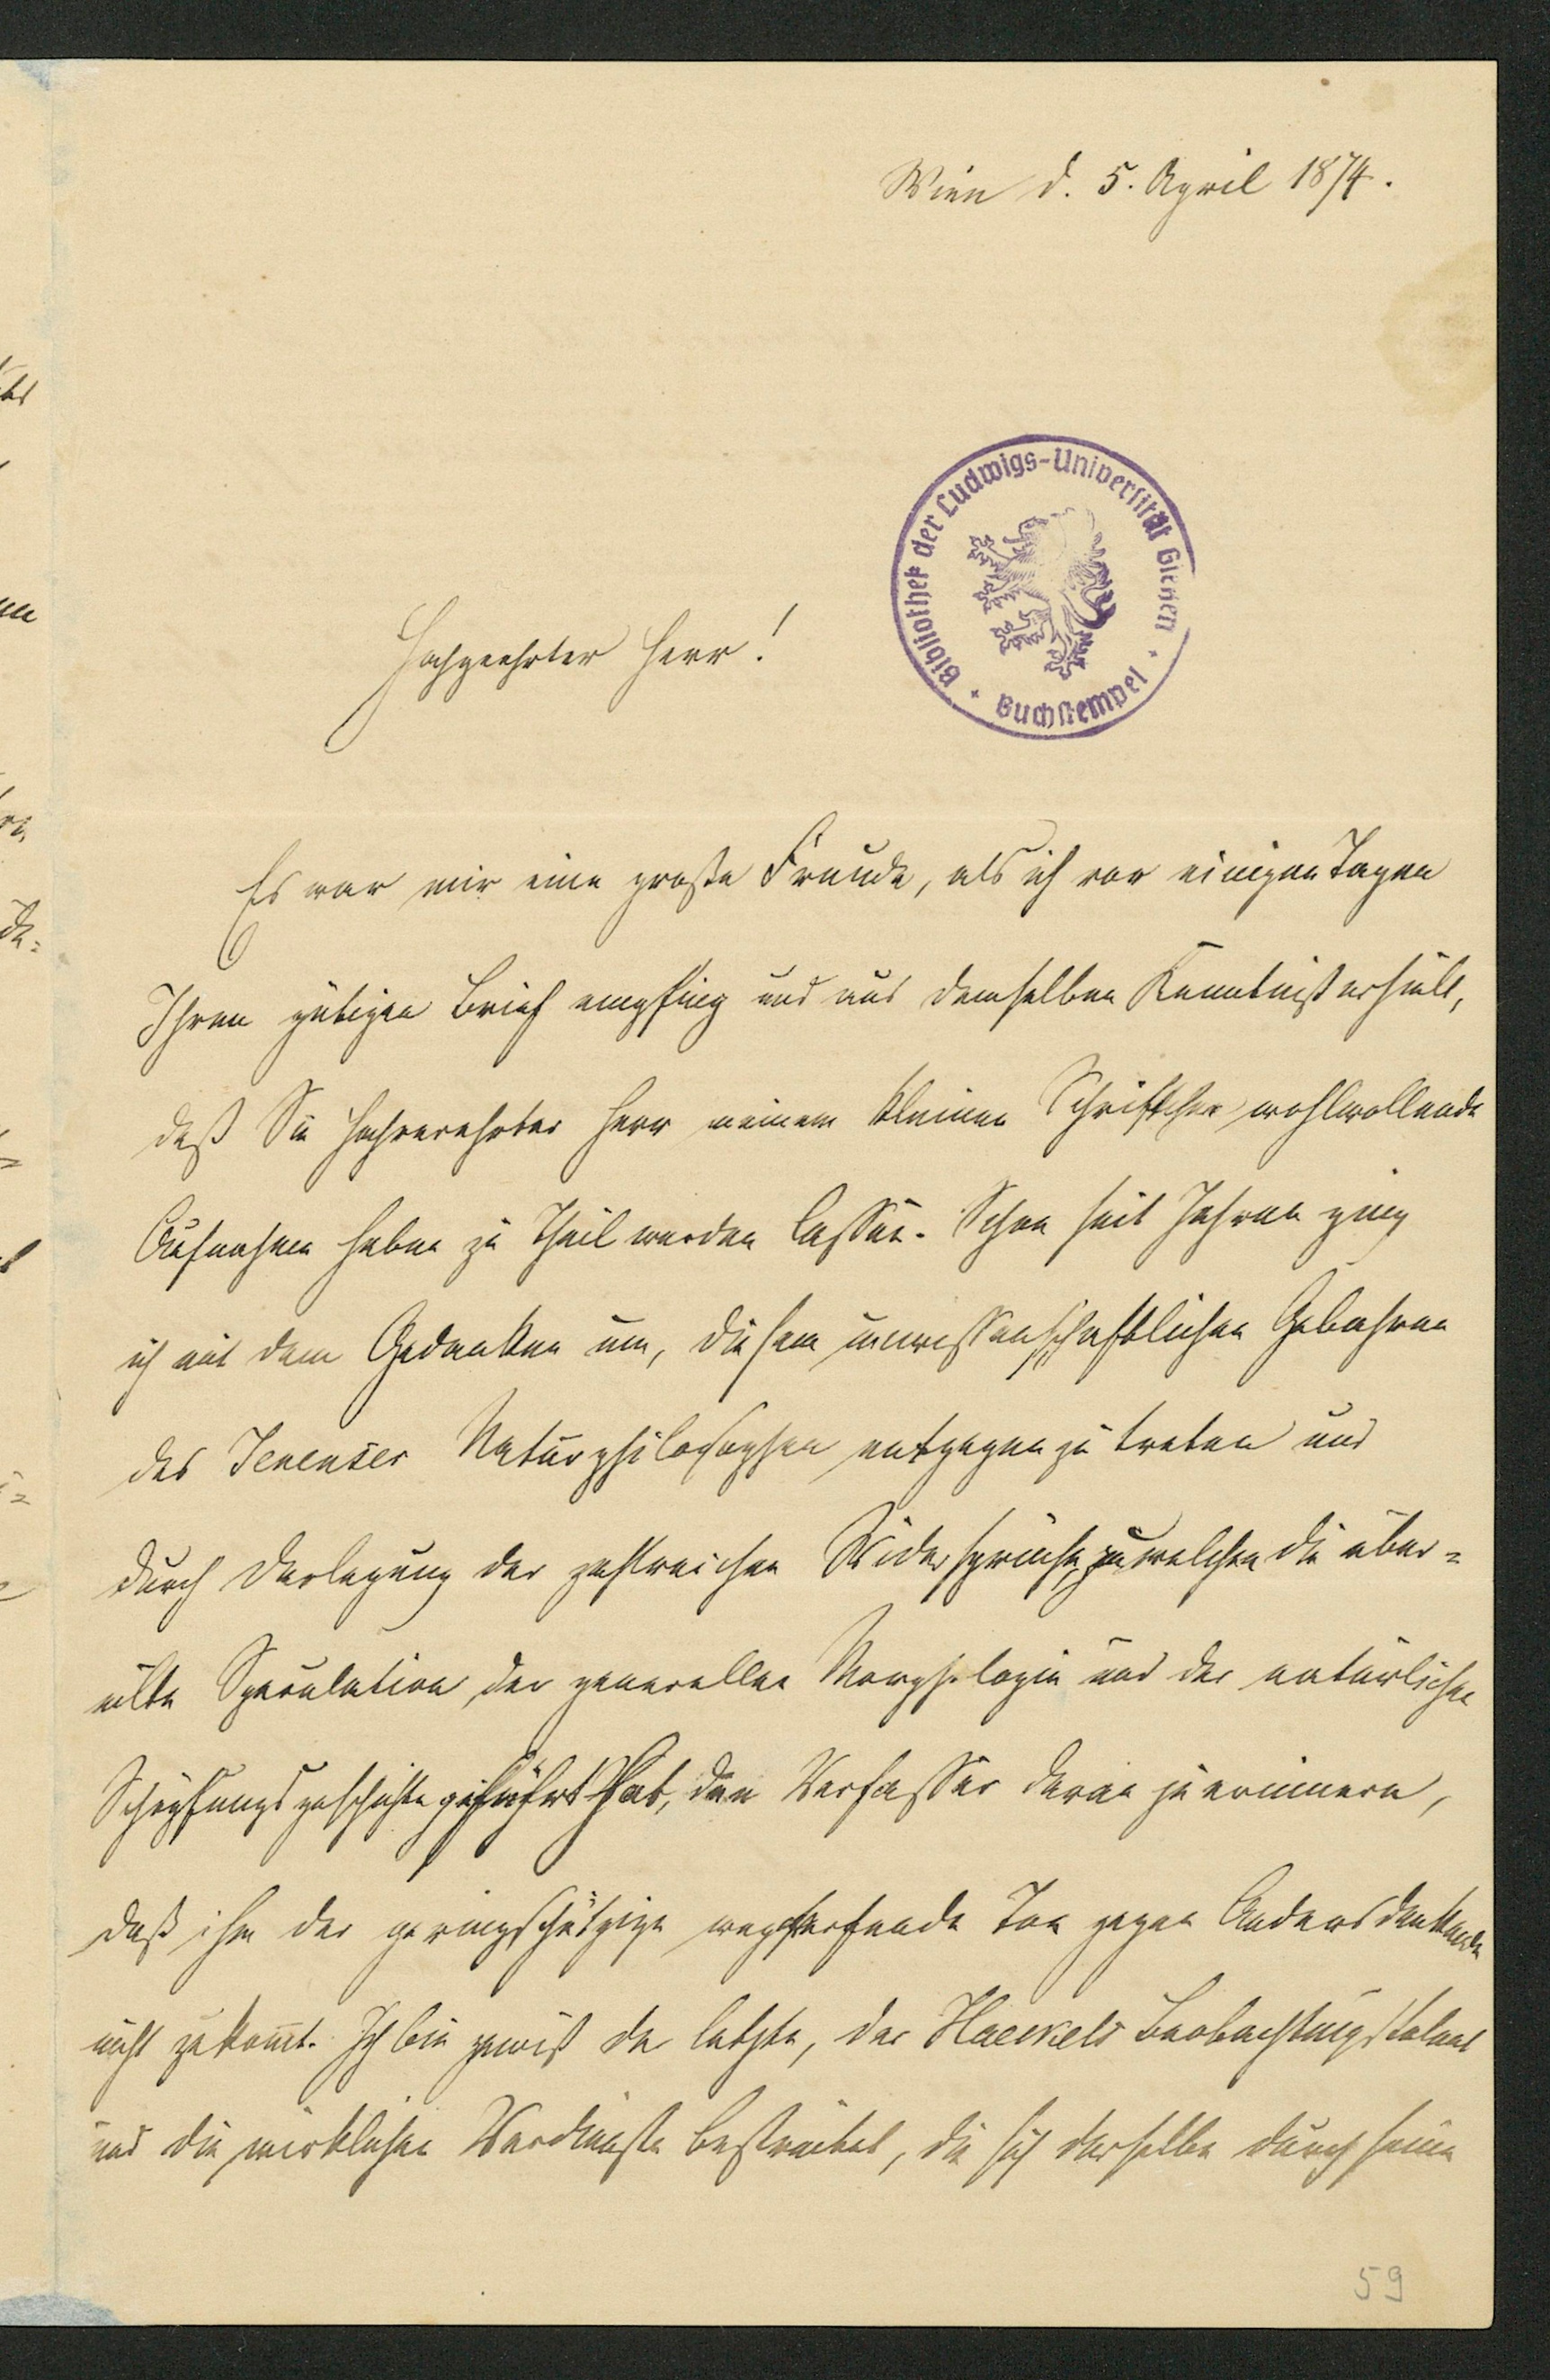 Wien d. 5. April 1874.
Bibliothek der Ludwigs-Universität Gießen
Buchstempel
Hochgeehrter Herr!
Es war mir eine große Freude, als ich vor einigen Tagen
Ihren gütigen Brief empfing und aus demselben Kenntniß erhielt,
daß Sie hochverehrter Herr meinem kleinen Schriftchen wohlwollende
Aufnahme haben zu Theil werden lassen. Schon seit Jahren ging
ich mit dem Gedanken um, diesem unwissenschaftlichen Gebahren
des Jenenser Naturphilosophen entgegen zu treten und
durch Darlegung der zahlreichen Widersprüche, zu welchen die über=
eilte Speculation der generellen Morphologie und der natürlichen
Schöpfungsgeschichte geführt hat, den Verfasser daran zu erinnern,
daß ihm der geringschätzige wegwerfende Ton gegen Andersdenkende
nicht zukomt. Ich bin gewiß der letzte, der Haeckels Beobachtungstalent
und die wirklichen Verdienste bestreitet, die sich derselbe durch seine
59